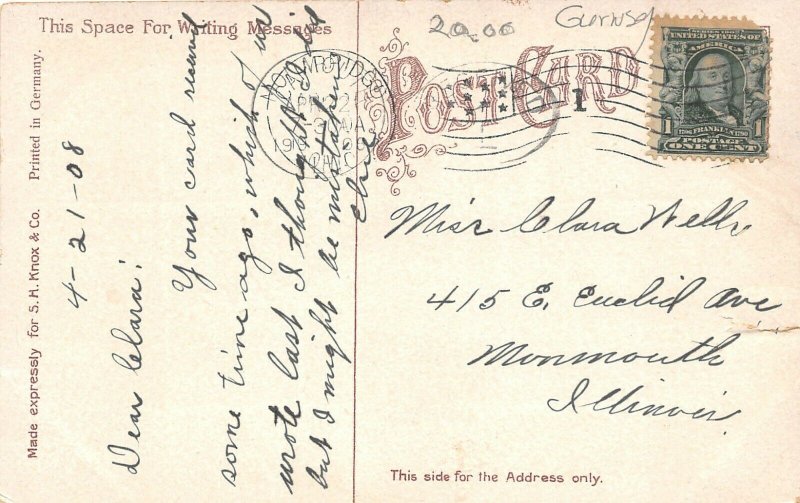 This Space For Writing Messages
4-21-08
Dear Clara:
Your card received
some time ago, which of us
wrote last I thought I did
but I might be mistaken
Made expressly for S. H. Knox & Co. Printed in Germany.
20.00
CAMBRIDGE
OHIO
POST CARD
1
SERIES 1902
UNITED STATES OF
AMERICA
1706 FRANKLIN 1790
1 POSTAGE 1
ONE CENT
Miss Clara Wells
415 E. Euclid Ave
Monmouth
Illinois.
This side for the Address only.